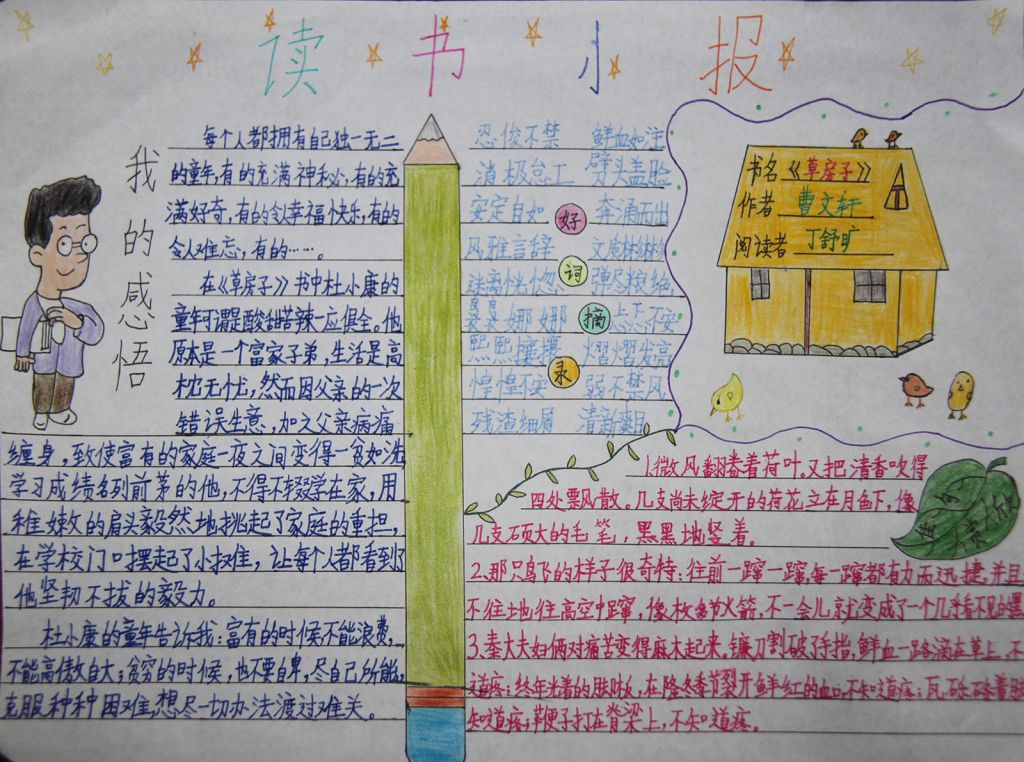 读书小报
我的感悟
每个人都拥有自己独一无二
的童年,有的充满神秘,有的充
满好奇,有的令人幸福快乐,有的
令人难忘,有的……。
在《草房子》书中杜小康的
童年可谓是酸甜苦辣一应俱全。他
原本是一个富家子弟,生活是高
枕无忧,然而因父亲的一次
错误生意,加之父亲病痛
缠身,致使富有的家庭一夜之间变得一贫如洗
学习成绩名列前茅的他,不得不辍学在家,用
稚嫩的肩头毅然地挑起了家庭的重担,
在学校门口摆起了小摊,让每个人都看到了
他坚韧不拔的毅力。
杜小康的童年告诉我:富有的时候不能浪费,
不能高傲自大;贫穷的时候,也不要自卑,尽自己所能,
克服种种困难,想尽一切办法渡过难关。
好词摘录
忍俊不禁 鲜血如注
消极怠工 劈头盖脸
安定自如 奔涌而出
风雅言辞 文质彬彬
迷离恍惚 弹尽粮绝
袅袅娜娜 忐忑不安
熙熙攘攘 熠熠发亮
惶惶不安 弱不禁风
残渣细屑 清新
书名《草房子》
作者 曹文轩
阅读者 丁舒旷
1.微风翻卷着荷叶,又把清香吹得
四处飘风散。几支尚未绽开的荷花立在月色下,像
几支硕大的毛笔,黑黑地竖着。
2.那只鸟飞的样子很奇特:往前一蹿一蹿,每一蹿都有力而迅捷,并且
不住地往高空中蹿,像枚多节火箭,不一会儿就变成了一个几乎看不见的黑
3.秦大夫妇俩对痛苦变得麻木起来。镰刀割破了手指,鲜血一路滴在草上,不
道疼;终年光着的肤,在隆冬季节裂开鲜红的血口,不知道疼;瓦砾硌着
知道疼;鞭子打在脊梁上,不知道疼。